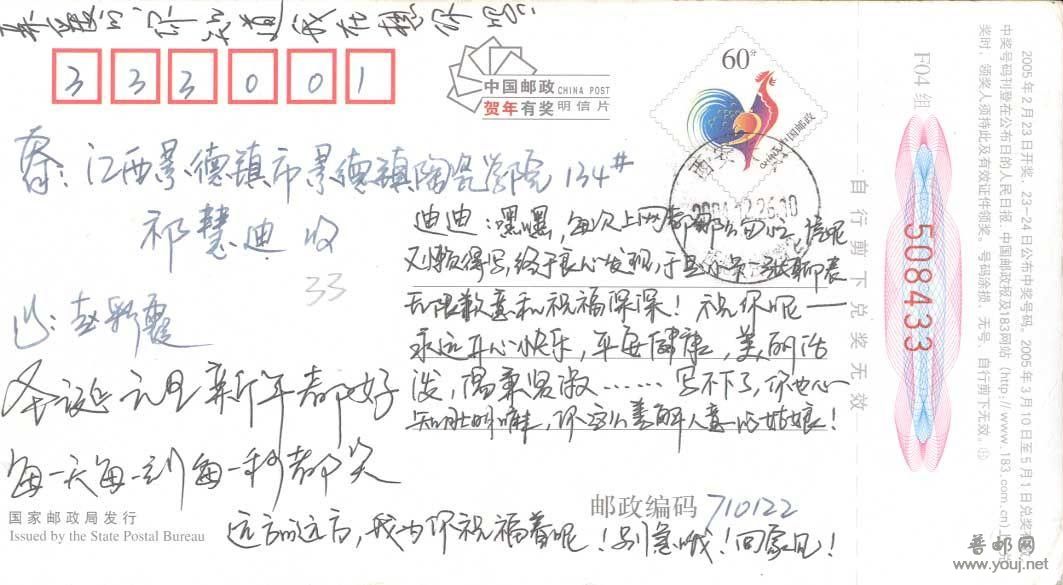 亲爱的,你知道我在想你吗
333001
中国邮政 CHINA POST
贺年有奖 明信片
60分
中国邮政
2004.12.26.10
寄:江西景德镇市景德镇陶瓷学院134#
祁慧迪 收
33
赵彩霞
迪迪:嘿嘿,每次上网都
又懒得写,终于良心发现,于是
无限歉意和祝福深深!祝你呢一
永远开心快乐,平安健康,美丽活
泼,温柔贤淑……写不下了,你也心
知肚明嘛,你这么善解人意的姑娘!
圣诞元旦新年都好
每一天每一刻每一秒都笑
国家邮政局发行
Issued by the State Postal Bureau
邮政编码 710122
远方的远方,我为你祝福着呢!别急哦!回家见!
自行剪下兑奖无效
F04组
508433
2005年2月23日开奖,23-24日公布中奖号码。2005年3月10日至5月1日兑奖
中奖号码刊登在公布日的人民日报、中国邮政报及183网站(http://www.183.com.cn)上
奖时,领奖人须持此及有效证件领奖。号码涂损、无号、自行剪下无效。
普邮网
www.youj.net